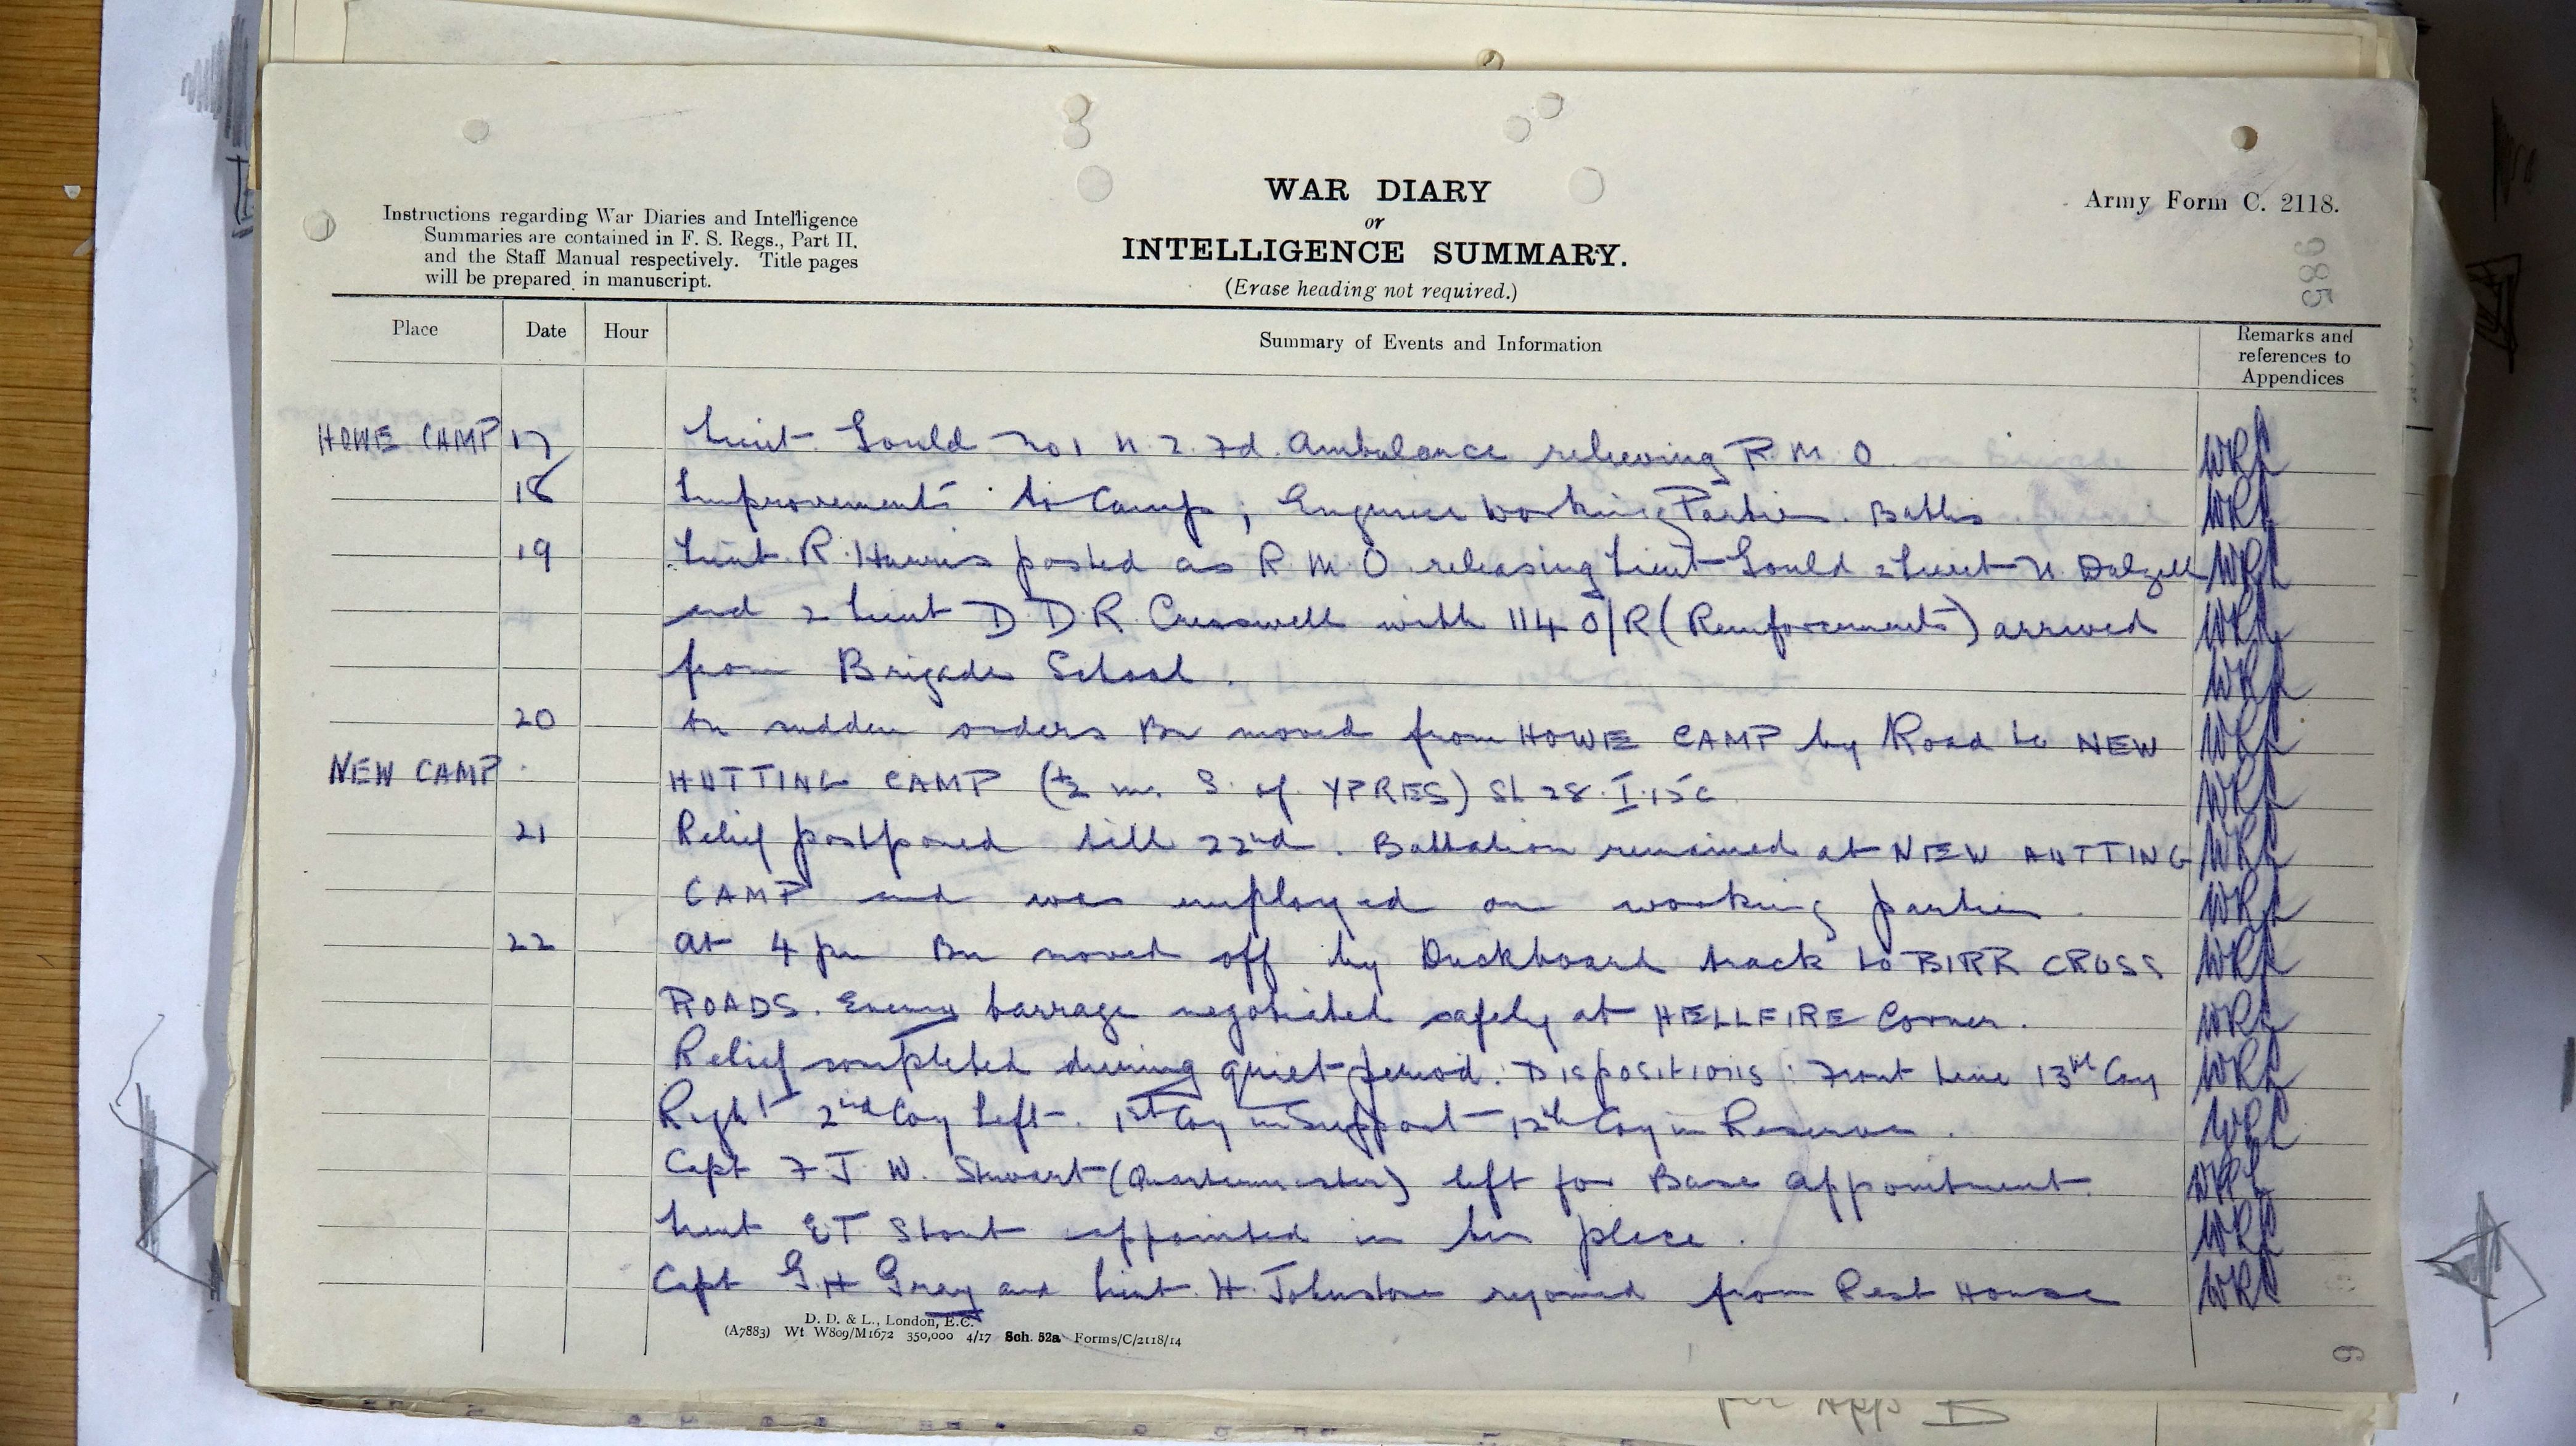 WAR DIARY
or
INTELLIGENCE SUMMARY.
(Erase heading not required.)
Army Form C. 2118.
Instructions regarding War Diaries and Intelligence
Summaries are contained in F. S. Regs., Part II.
and the Staff Manual respectively. Title pages
will be prepared in manuscript.
985
Place Date Hour Summary of Events and Information Remarks and
references to
Appendices
HOWE CAMP 17 Lieut. Gould No 1 N. Z. Fd. Ambulance relieving R. M. O.
18 Improvements to Camp; Engineer Working Parties. Baths
19 Lieut. R. Harris posted as R M. O. releasing Lieut Gould 2 Lieut N. Dalzell
and 2 Lieut D. D. R. Cresswell with 114 O/R (Reinforcements) arrived
from Brigade School.
20 On sudden orders Bn moved from HOWE CAMP by Road to NEW
NEW CAMP. HUTTING CAMP (½ m. S. of YPRES) Sh 28. I.15c
21 Relief postponed till 22nd. Battalion remained at NEW HUTTING
CAMP and was employed on working parties.
22 At 4 pm Bn moved off by Duckboard track to BIRR CROSS
ROADS. Enemy barrage negotiated safely at HELLFIRE Corner.
Relief completed during quiet period. Dispositions: Front Line 13th Coy
Right 2nd Coy Left. 1st Coy in Support 12th Coy in Reserve.
Capt F. J. W. Stewart (Quartermaster) left for Base Appointment.
Lieut E T Stout appointed in his place.
Capt G. H Gray and Lieut. H. Johnstone rejoined from Rest House
D. D. & L., London, E.C.
(A7883) Wt W809/M1672 350,000 4/17 Sch. 52a Forms/C/2118/14
6
for App II